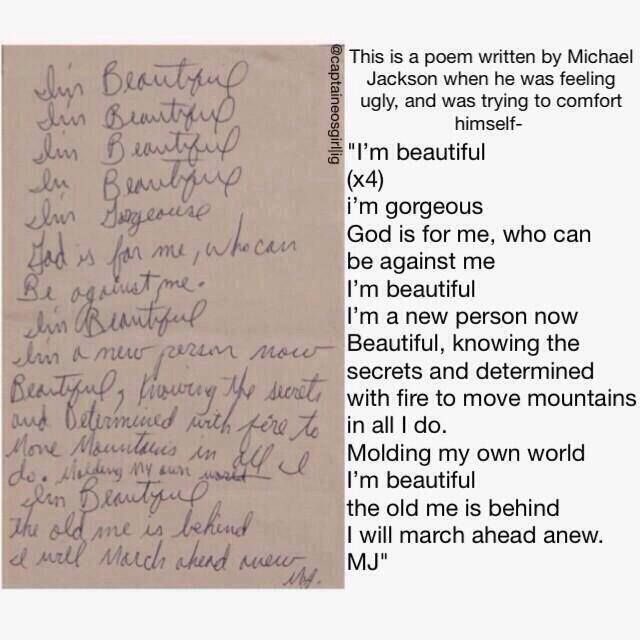 I'm Beautiful
I'm Beautiful
I'm Beautiful
I'm Beautiful
I'm Gorgeouse
God is for me, who can
Be against me.
I'm Beautiful
I'm a new person now
Beautiful, knowing the secrets
and Determined with fire to
Move Mountains in all I
do. Molding My own world
I'm Beautiful
The old me is behind
I will March ahead anew
MJ.
@captaineosgirl|ig
This is a poem written by Michael
Jackson when he was feeling
ugly, and was trying to comfort
himself-
"I'm beautiful
(x4)
i'm gorgeous
God is for me, who can
be against me
I'm beautiful
I'm a new person now
Beautiful, knowing the
secrets and determined
with fire to move mountains
in all I do.
Molding my own world
I'm beautiful
the old me is behind
I will march ahead anew.
MJ"